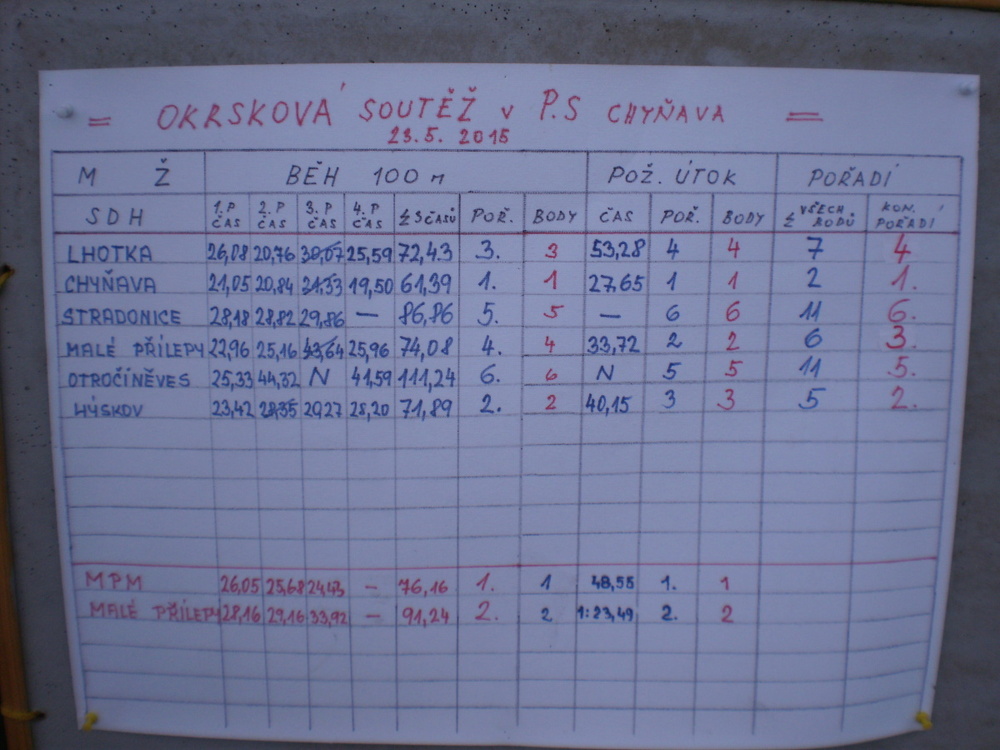 = OKRSKOVÁ SOUTĚŽ v P.S CHYŇAVA =
23.5. 2015
M Ž BĚH 100 m POŽ. ÚTOK POŘADÍ
SDH 1.P ČAS 2.P ČAS 3.P ČAS 4.P ČAS Σ 3 ČASŮ POŘ. BODY ČAS POŘ. BODY Σ VŠECH BODŮ KON. POŘADÍ
LHOTKA 26,08 20,76 30,07 25,59 72,43 3. 3 53,28 4 4 7 4.
CHYŇAVA 21,05 20,84 21,33 19,50 61,39 1. 1 27,65 1 1 2 1.
STRADONICE 28,18 28,82 29,86 — 86,86 5. 5 — 6 6 11 6.
MALÉ PŘÍLEPY 22,96 25,16 43,64 25,96 74,08 4. 4 33,72 2 2 6 3.
OTROČÍNĚVES 25,33 44,32 N 41,59 111,24 6. 6 N 5 5 11 5.
HÝSKOV 23,42 28,35 20,27 28,20 71,89 2. 2 40,15 3 3 5 2.
MPM 26,05 25,68 24,43 – 76,16 1. 1 48,55 1. 1
MALÉ PŘÍLEPY 28,16 29,16 33,92 – 91,24 2. 2 1:23,49 2. 2